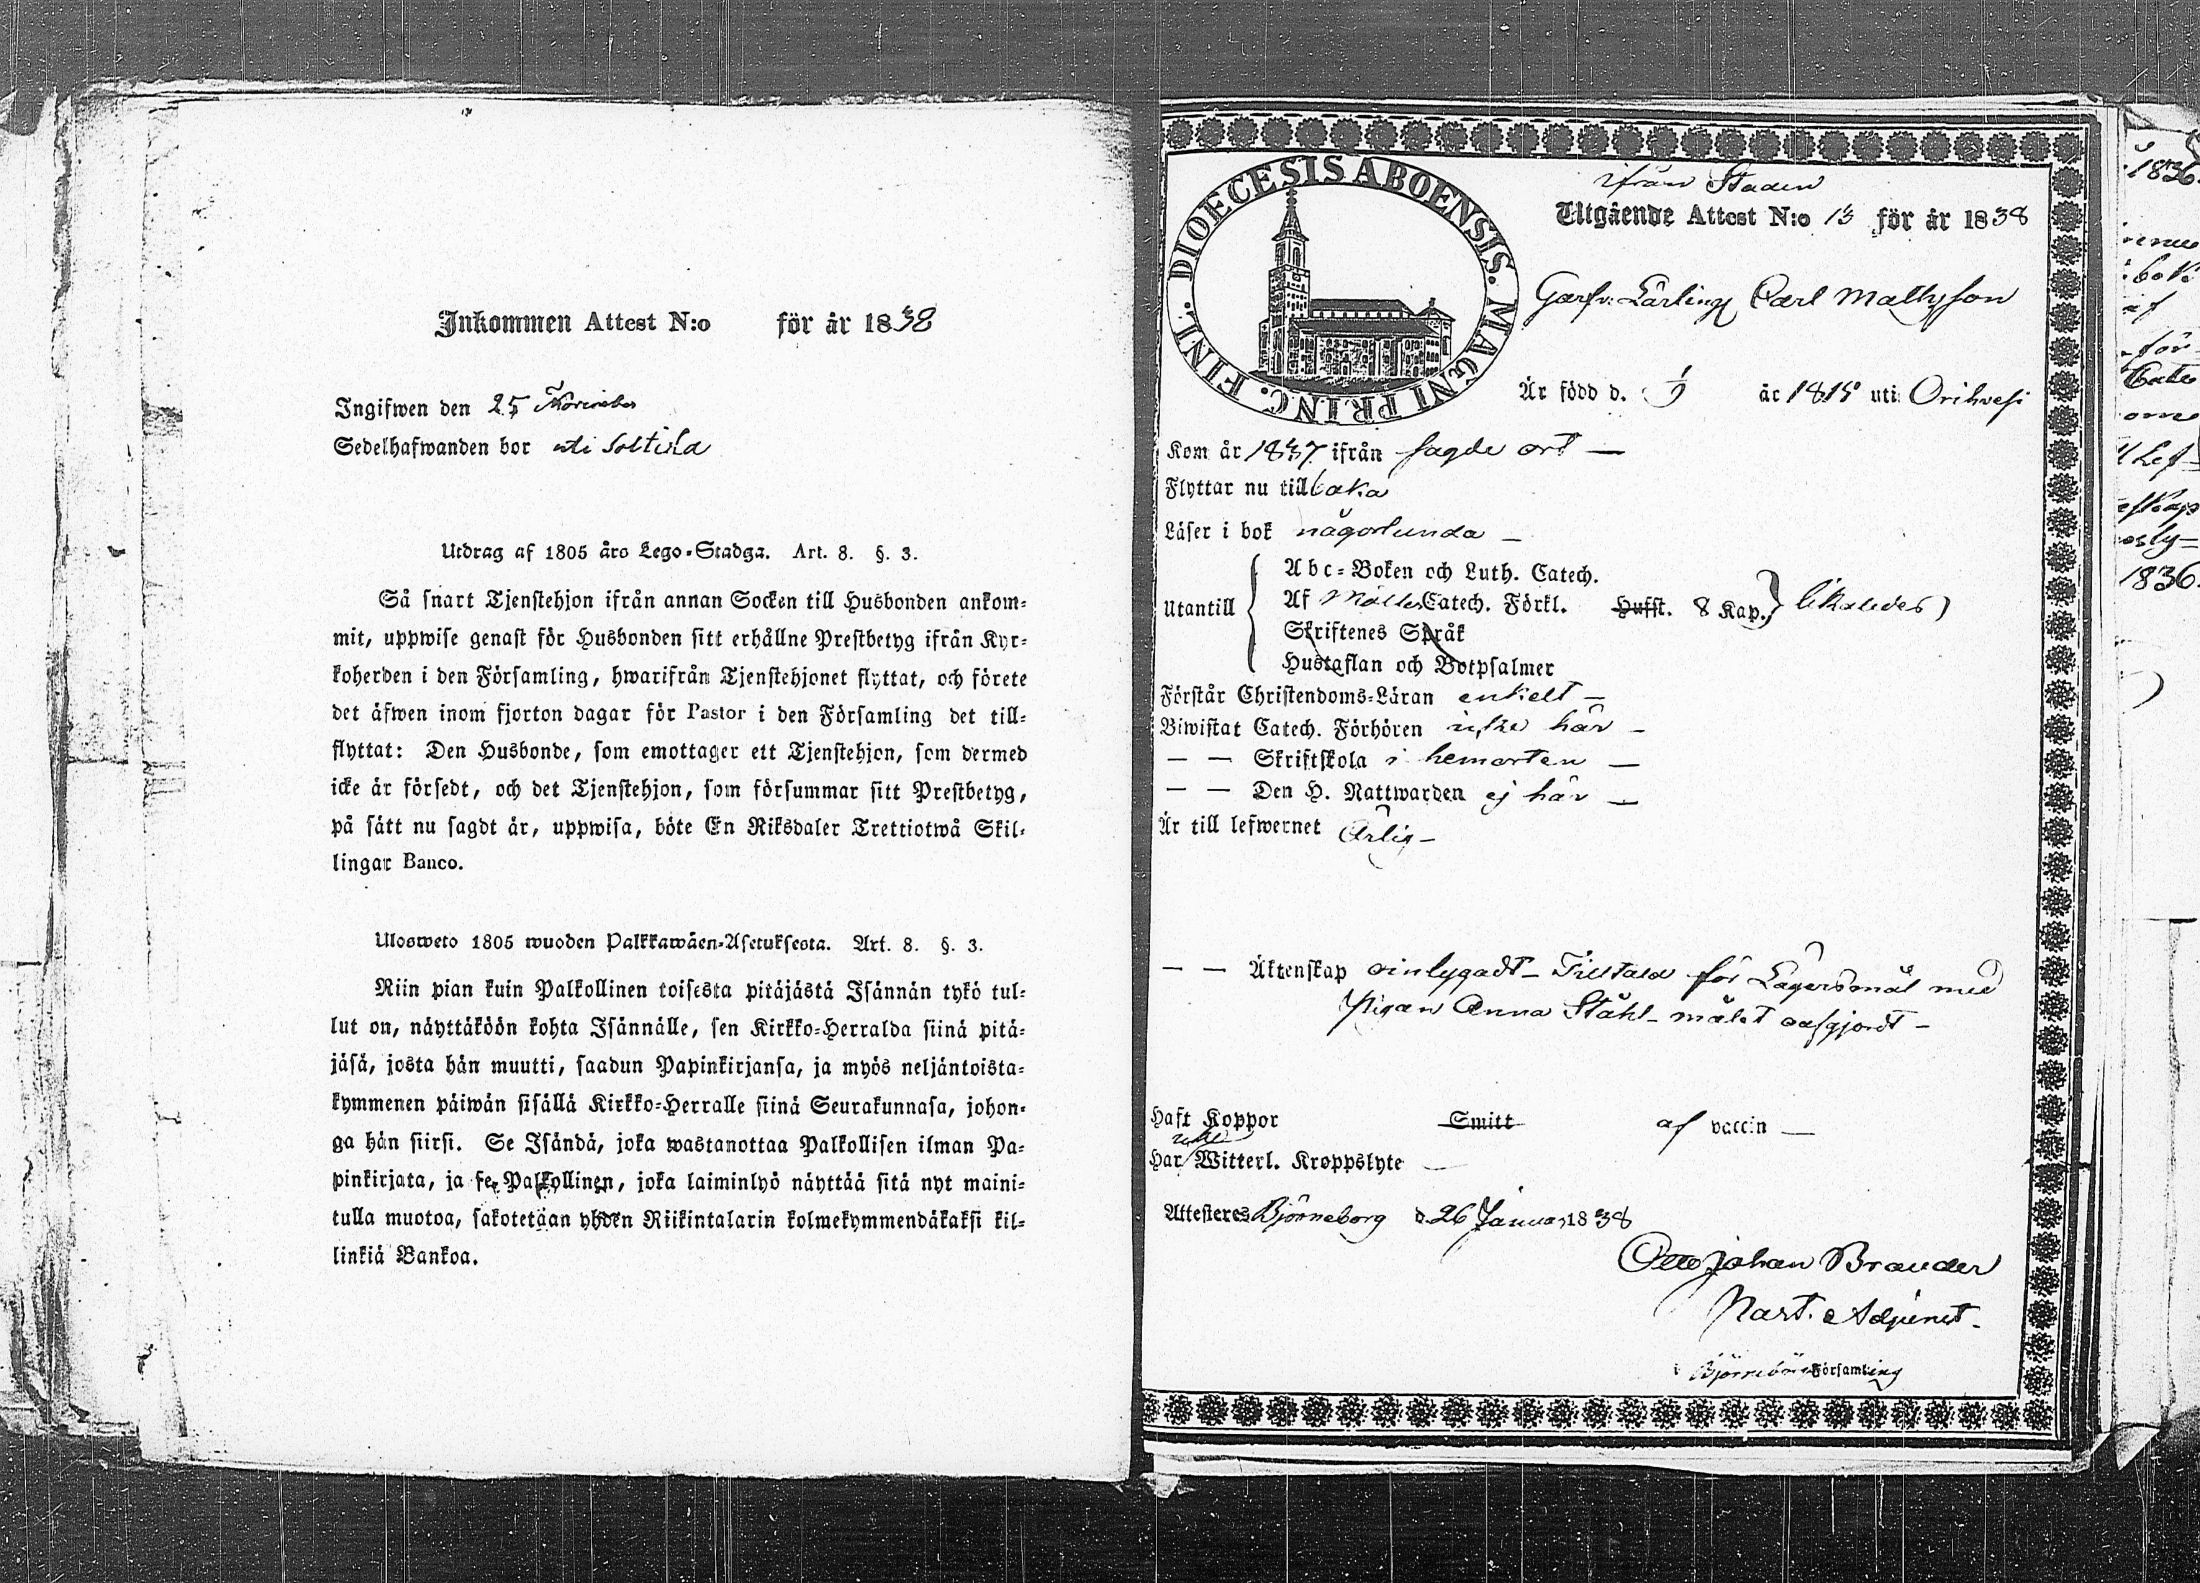 Inkommen Attest N:o för år 1838
Ingifwen den 25 November
Sedelhafwanden bor uti Soltila
Utdrag af 1805 års Lego-Stadga. Art. 8. §. 3.
Så snart Tjenstehjon ifrån annan Socken till Husbonden ankom-
mit, uppwise genast för Husbonden sitt erhållne Prestbetyg ifrån Kyr-
koherden i den Församling, hwarifrån Tjenstehjonet flyttat, och förete
det äfwen inom fjorton dagar för Pastor i den Församling det till-
flyttat: Den Husbonde, som emottager ett Tjenstehjon, som dermed
icke är försedt, och det Tjenstehjon, som försummar sitt Prestbetyg,
på sätt nu sagdt är, uppwisa, böte En Riksdaler Trettiotwå Skil-
lingar Banco.
Ulosweto 1805 wuoden Palkkawäen-Asetuksesta. Art. 8. §. 3.
Niin pian kuin Palkollinen toisesta pitäjästä Isännän tykö tul-
lut on, näyttäköön kohta Isännälle, sen Kirkko-Herralda siinä pitä-
jäsä, josta hän muutti, saadun Papinkirjansa, ja myös neljäntoista-
kymmenen päiwän sisällä Kirkko-Herralle siinä Seurakunnasa, johon-
ga hän siirsi. Se Isändä, joka wastanottaa Palkollisen ilman Pa-
pinkirjata, ja se Palkollinen, joka laiminlyö näyttää sitä nyt maini-
tulla muotoa, sakotetaan yhden Riikintalarin kolmekymmendäkaksi kil-
linkiä Bankoa.
DIOECESIS ABOENSIS. MAGNI PRINC. FINL.
ifrån Staden
Utgående Attest N:o 13 för år 1838
Garfv: Lärling Carl Mattsson
Är född d. 1/9 år 1815 uti Orihvesi
Kom år 1837 ifrån sagde ort —
Flyttar nu tillbaka
Läser i bok någorlunda —
Utantill
Abc-Boken och Luth. Catech.
Af Möllers Catech. Förkl. Hufst. 8 Kap. likaledes
Skriftenes Språk
Hustaflan och Botpsalmer
Förstår Christendoms-Läran enkelt —
Biwistat Catech. Förhören icke här —
— — Skriftskola i hemorten —
— — Den H. Nattwarden ej här —
Är till lefwernet Ärlig —
— — Äktenskap oinlygadt — Tilltalad för Lägersmål med
Pigan Anna Ståhl — målet aafgjordt —
Haft Koppor Smitt af vaccin —
icke
Har Witterl. Kroppslyte —
Attesteres Björneborg d. 26 Januar. 1838
Otto Johan Brander
Past. Adjunct.
i Björneborgs Församling
1836.
1836.